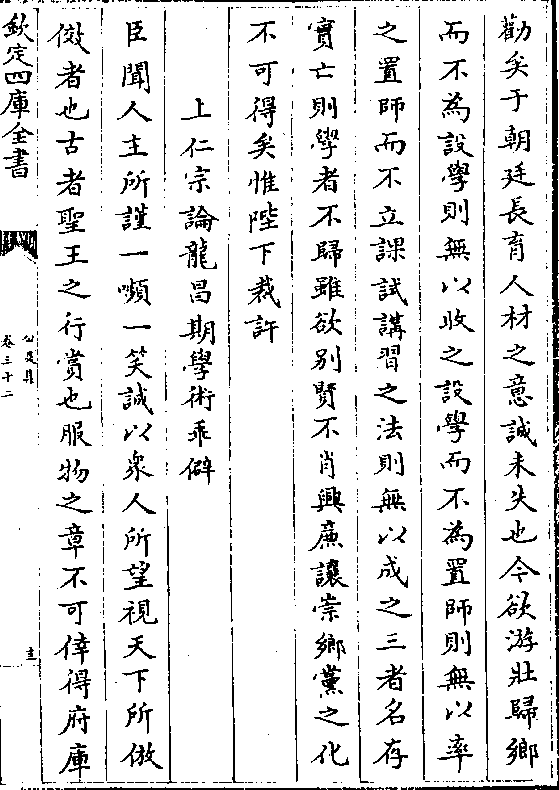 勸矣于朝廷長育人材之意誠未失也今欲游壯歸鄉
而不為設學則無以收之設學而不為置師則無以率
之置師而不立課試講習之法則無以成之三者名存
實亡則學者不歸雖欲别賢不肖興廉讓崇鄉黨之化
不可得矣惟陛下裁許
上仁宗論龍昌期學術乖僻
臣聞人主所謹一嚬一笑誠以衆人所望視天下所倣
傚者也古者聖王之行賞也服物之章不可倖得府庫
欽定四庫全書
公是集
卷三十二